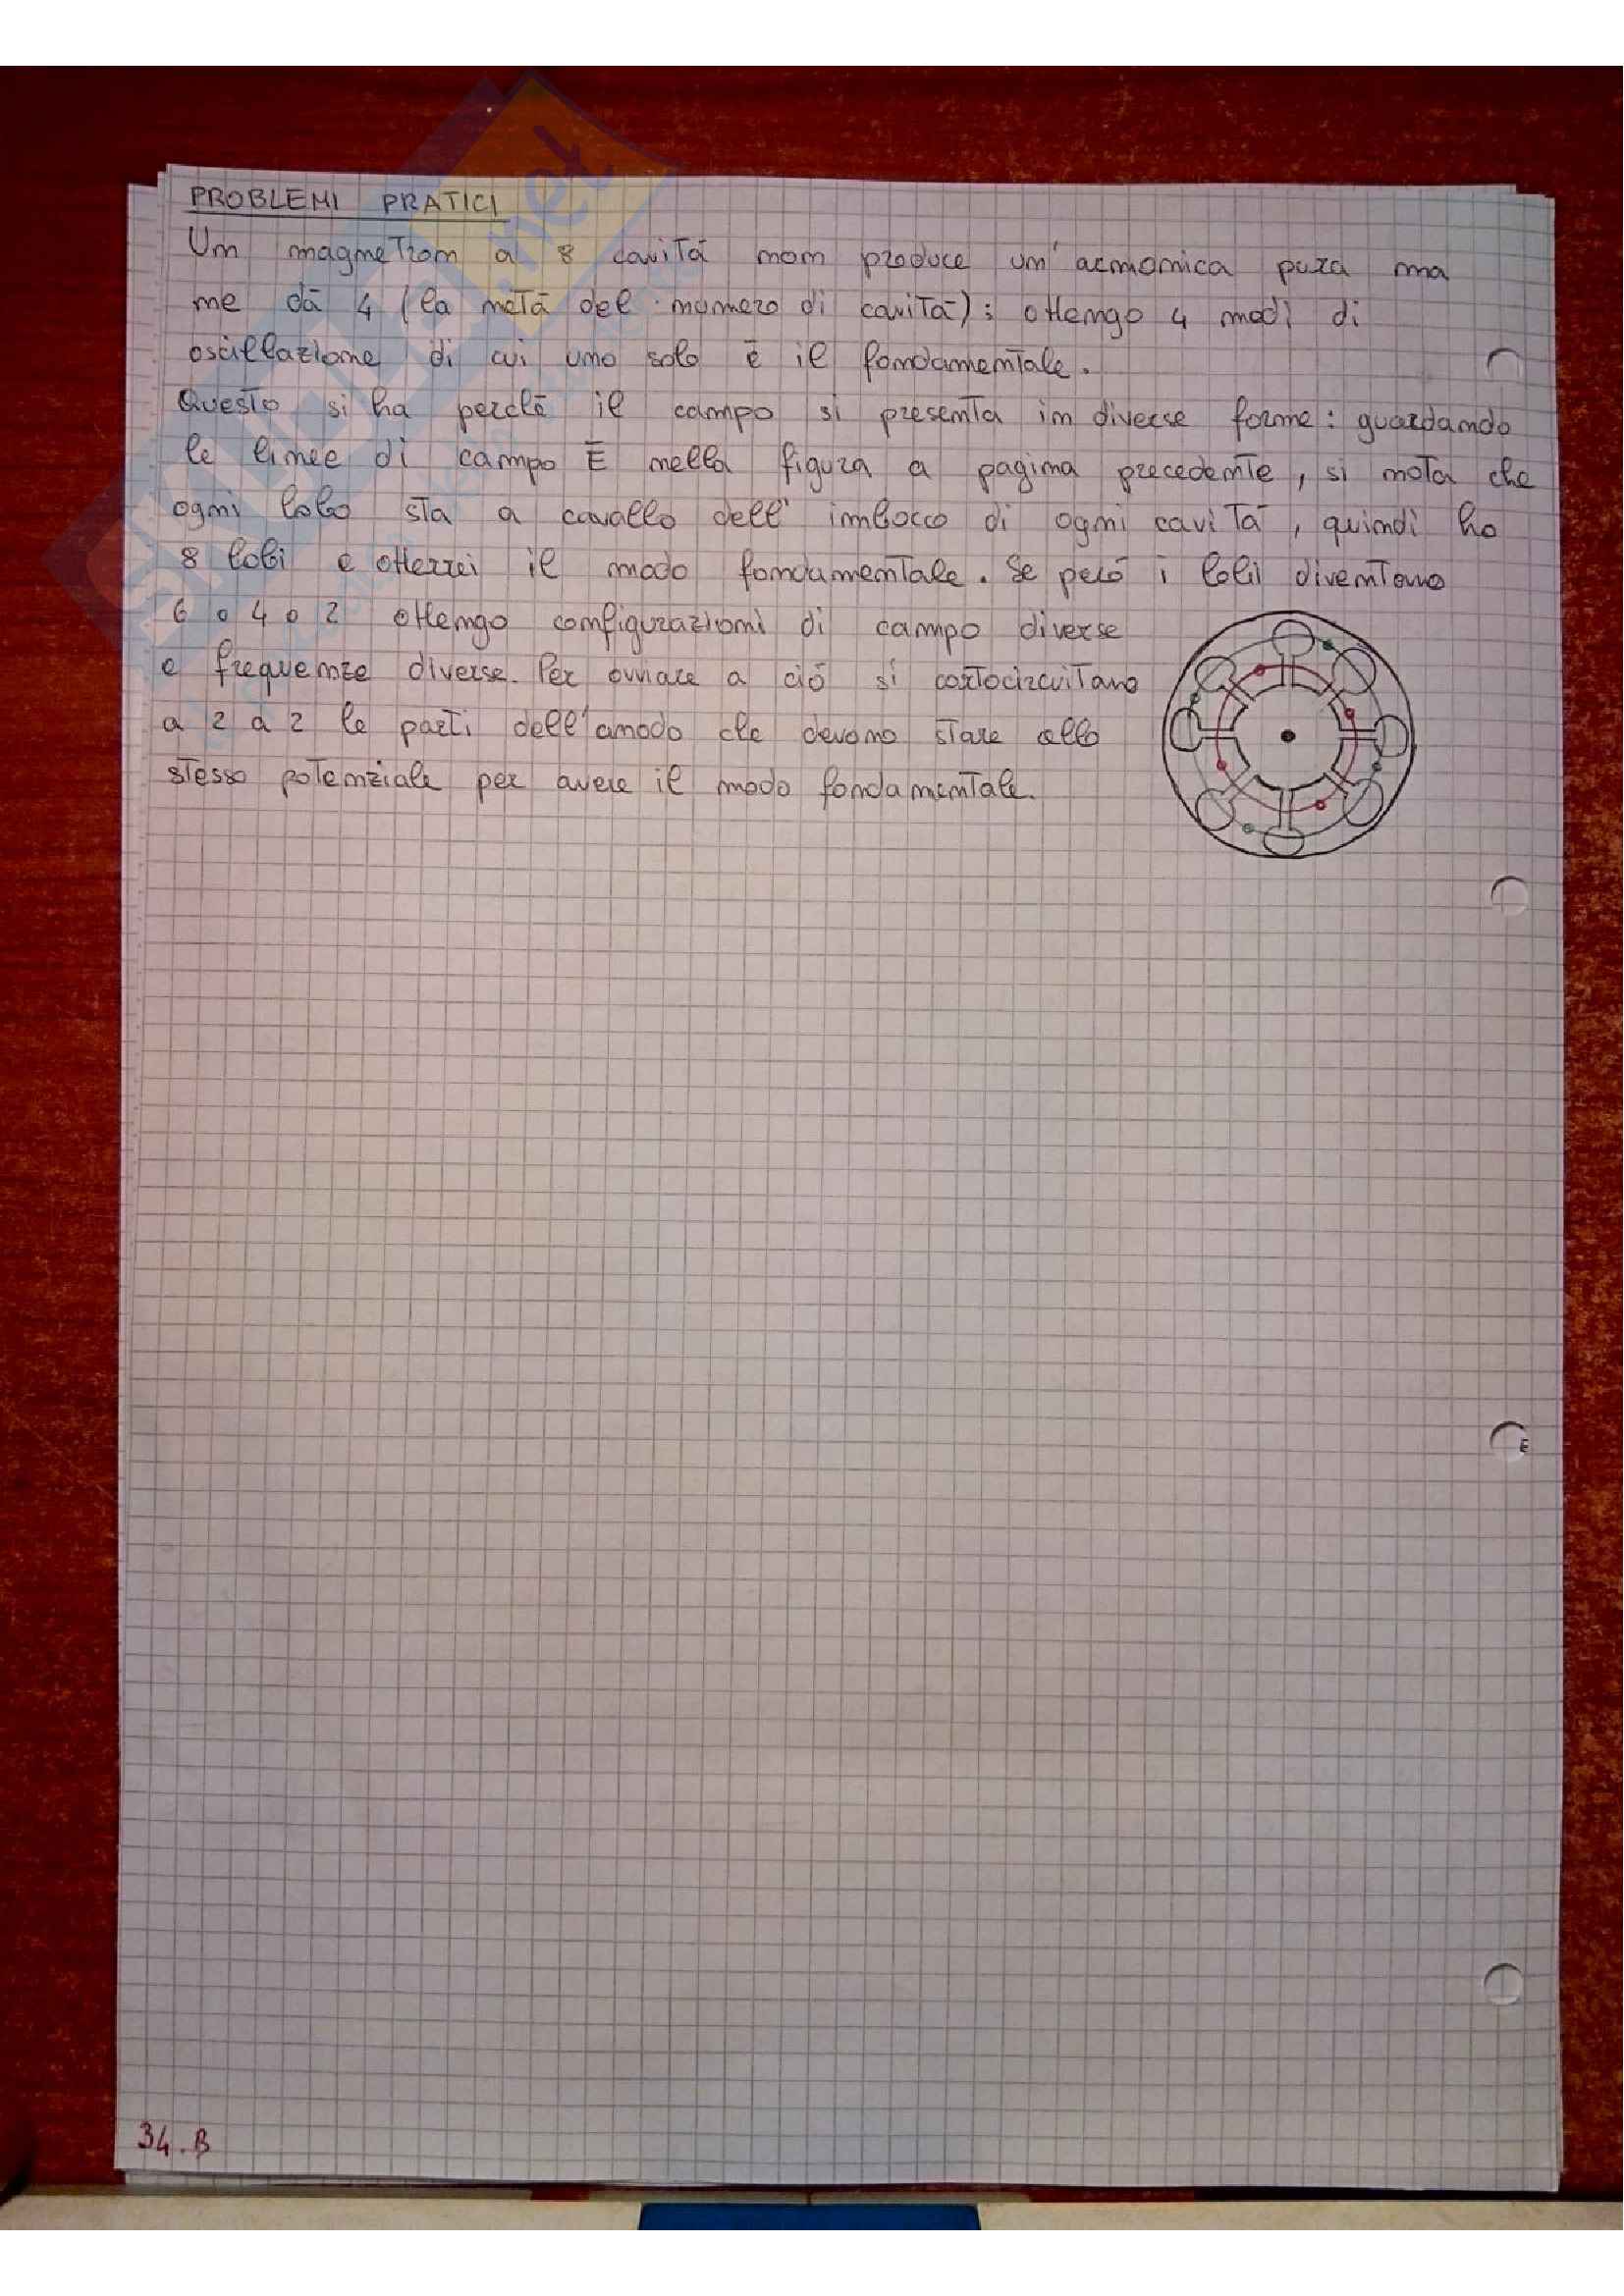 PROBLEMI PRATICI
Un magnetron a 8 cavità non produce un'armonica pura ma
ne dà 4 (la metà del numero di cavità): ottengo 4 modi di
oscillazione di cui uno solo è il fondamentale.
Questo si ha perché il campo si presenta in diverse forme: guardando
le linee di campo E nella figura a pagina precedente, si nota che
ogni lobo sta a cavallo dell'imbocco di ogni cavità, quindi ho
8 lobi e otterrei il modo fondamentale. Se però i lobi diventano
6 o 4 o 2 ottengo configurazioni di campo diverse
e frequenze diverse. Per ovviare a ciò si cortocircuitano
a 2 a 2 le parti dell'anodo che devono stare allo
stesso potenziale per avere il modo fondamentale.
E
34.B